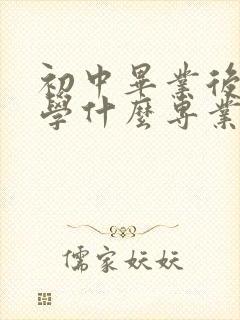 初中畢業後
學什麼專業
儒家妖妖